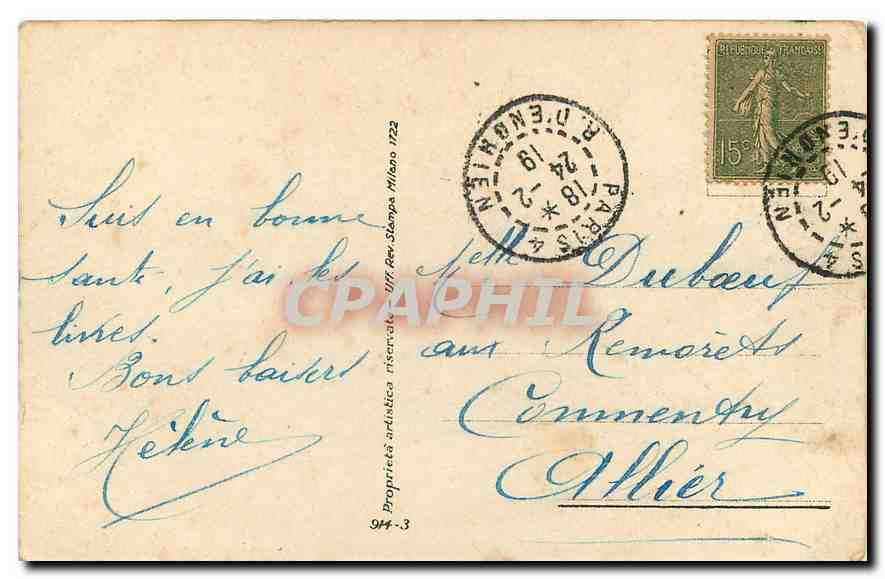 Suis en bonne
santé, j'ai les
livres.
Bons baisers
Hélène
Proprietà artistica riservata Uff. Rev. Stampa Milano 1722
914-3
REPUBLIQUE FRANÇAISE
15c
PARIS 4
R. D'ENGHIEN
18 *
-2
24
19
PARIS 4
R. D'ENGHIEN
-2 *
19
Melle Dubœuf
aux Remorets
Commentry
Allier
CPAPHIL